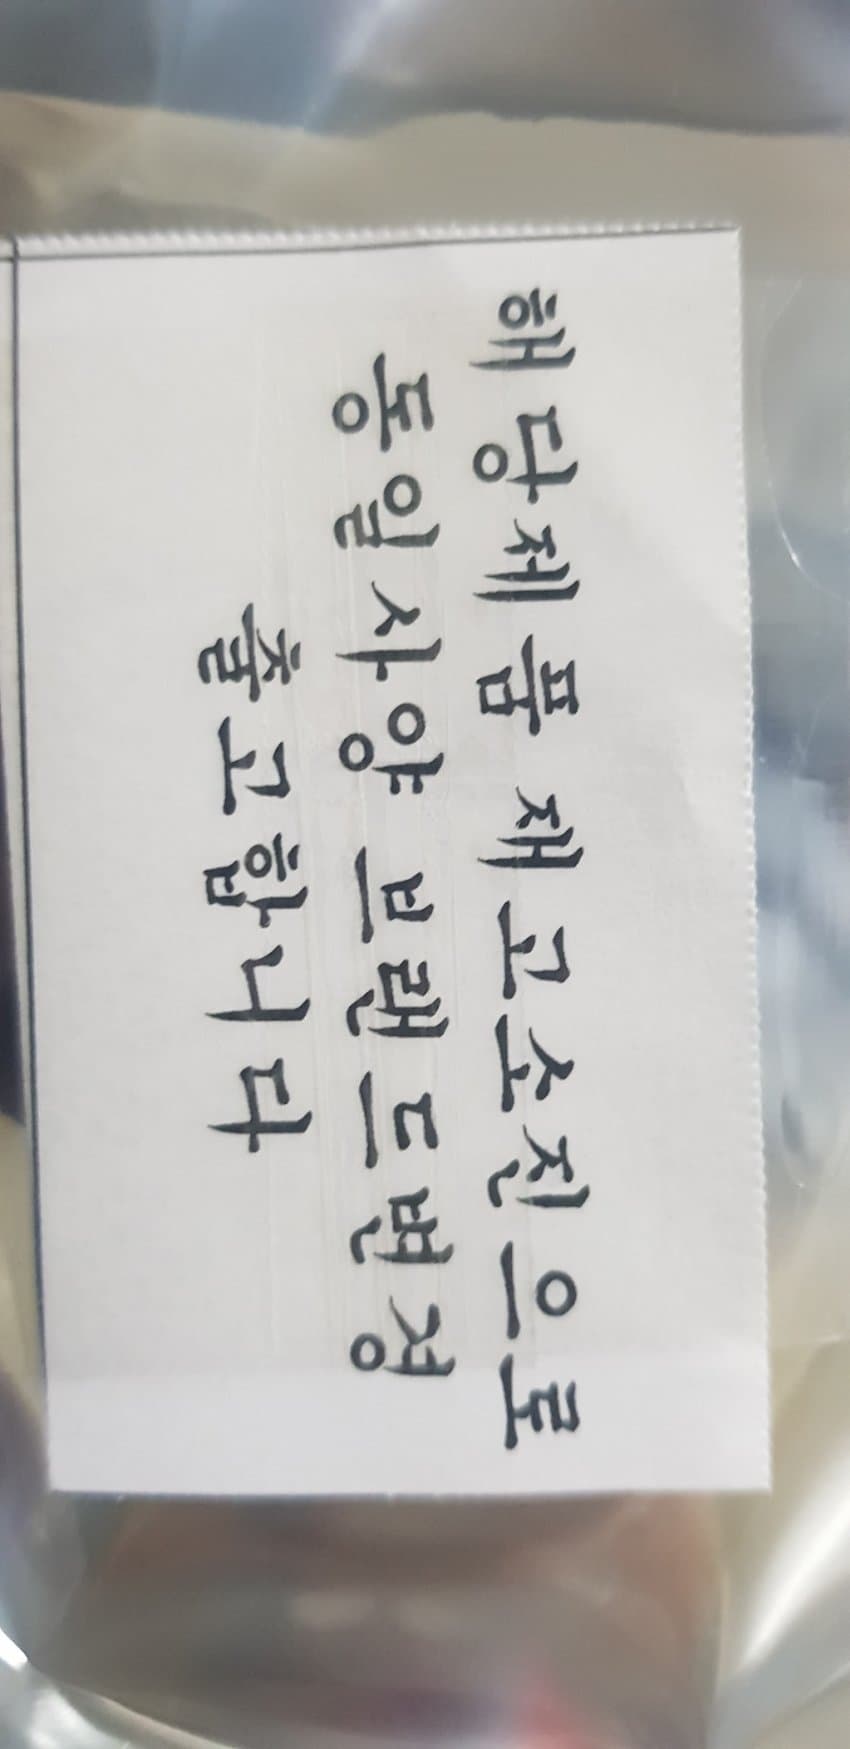 해당제품 재고소진으로
동일사양 브랜드변경
출고합니다